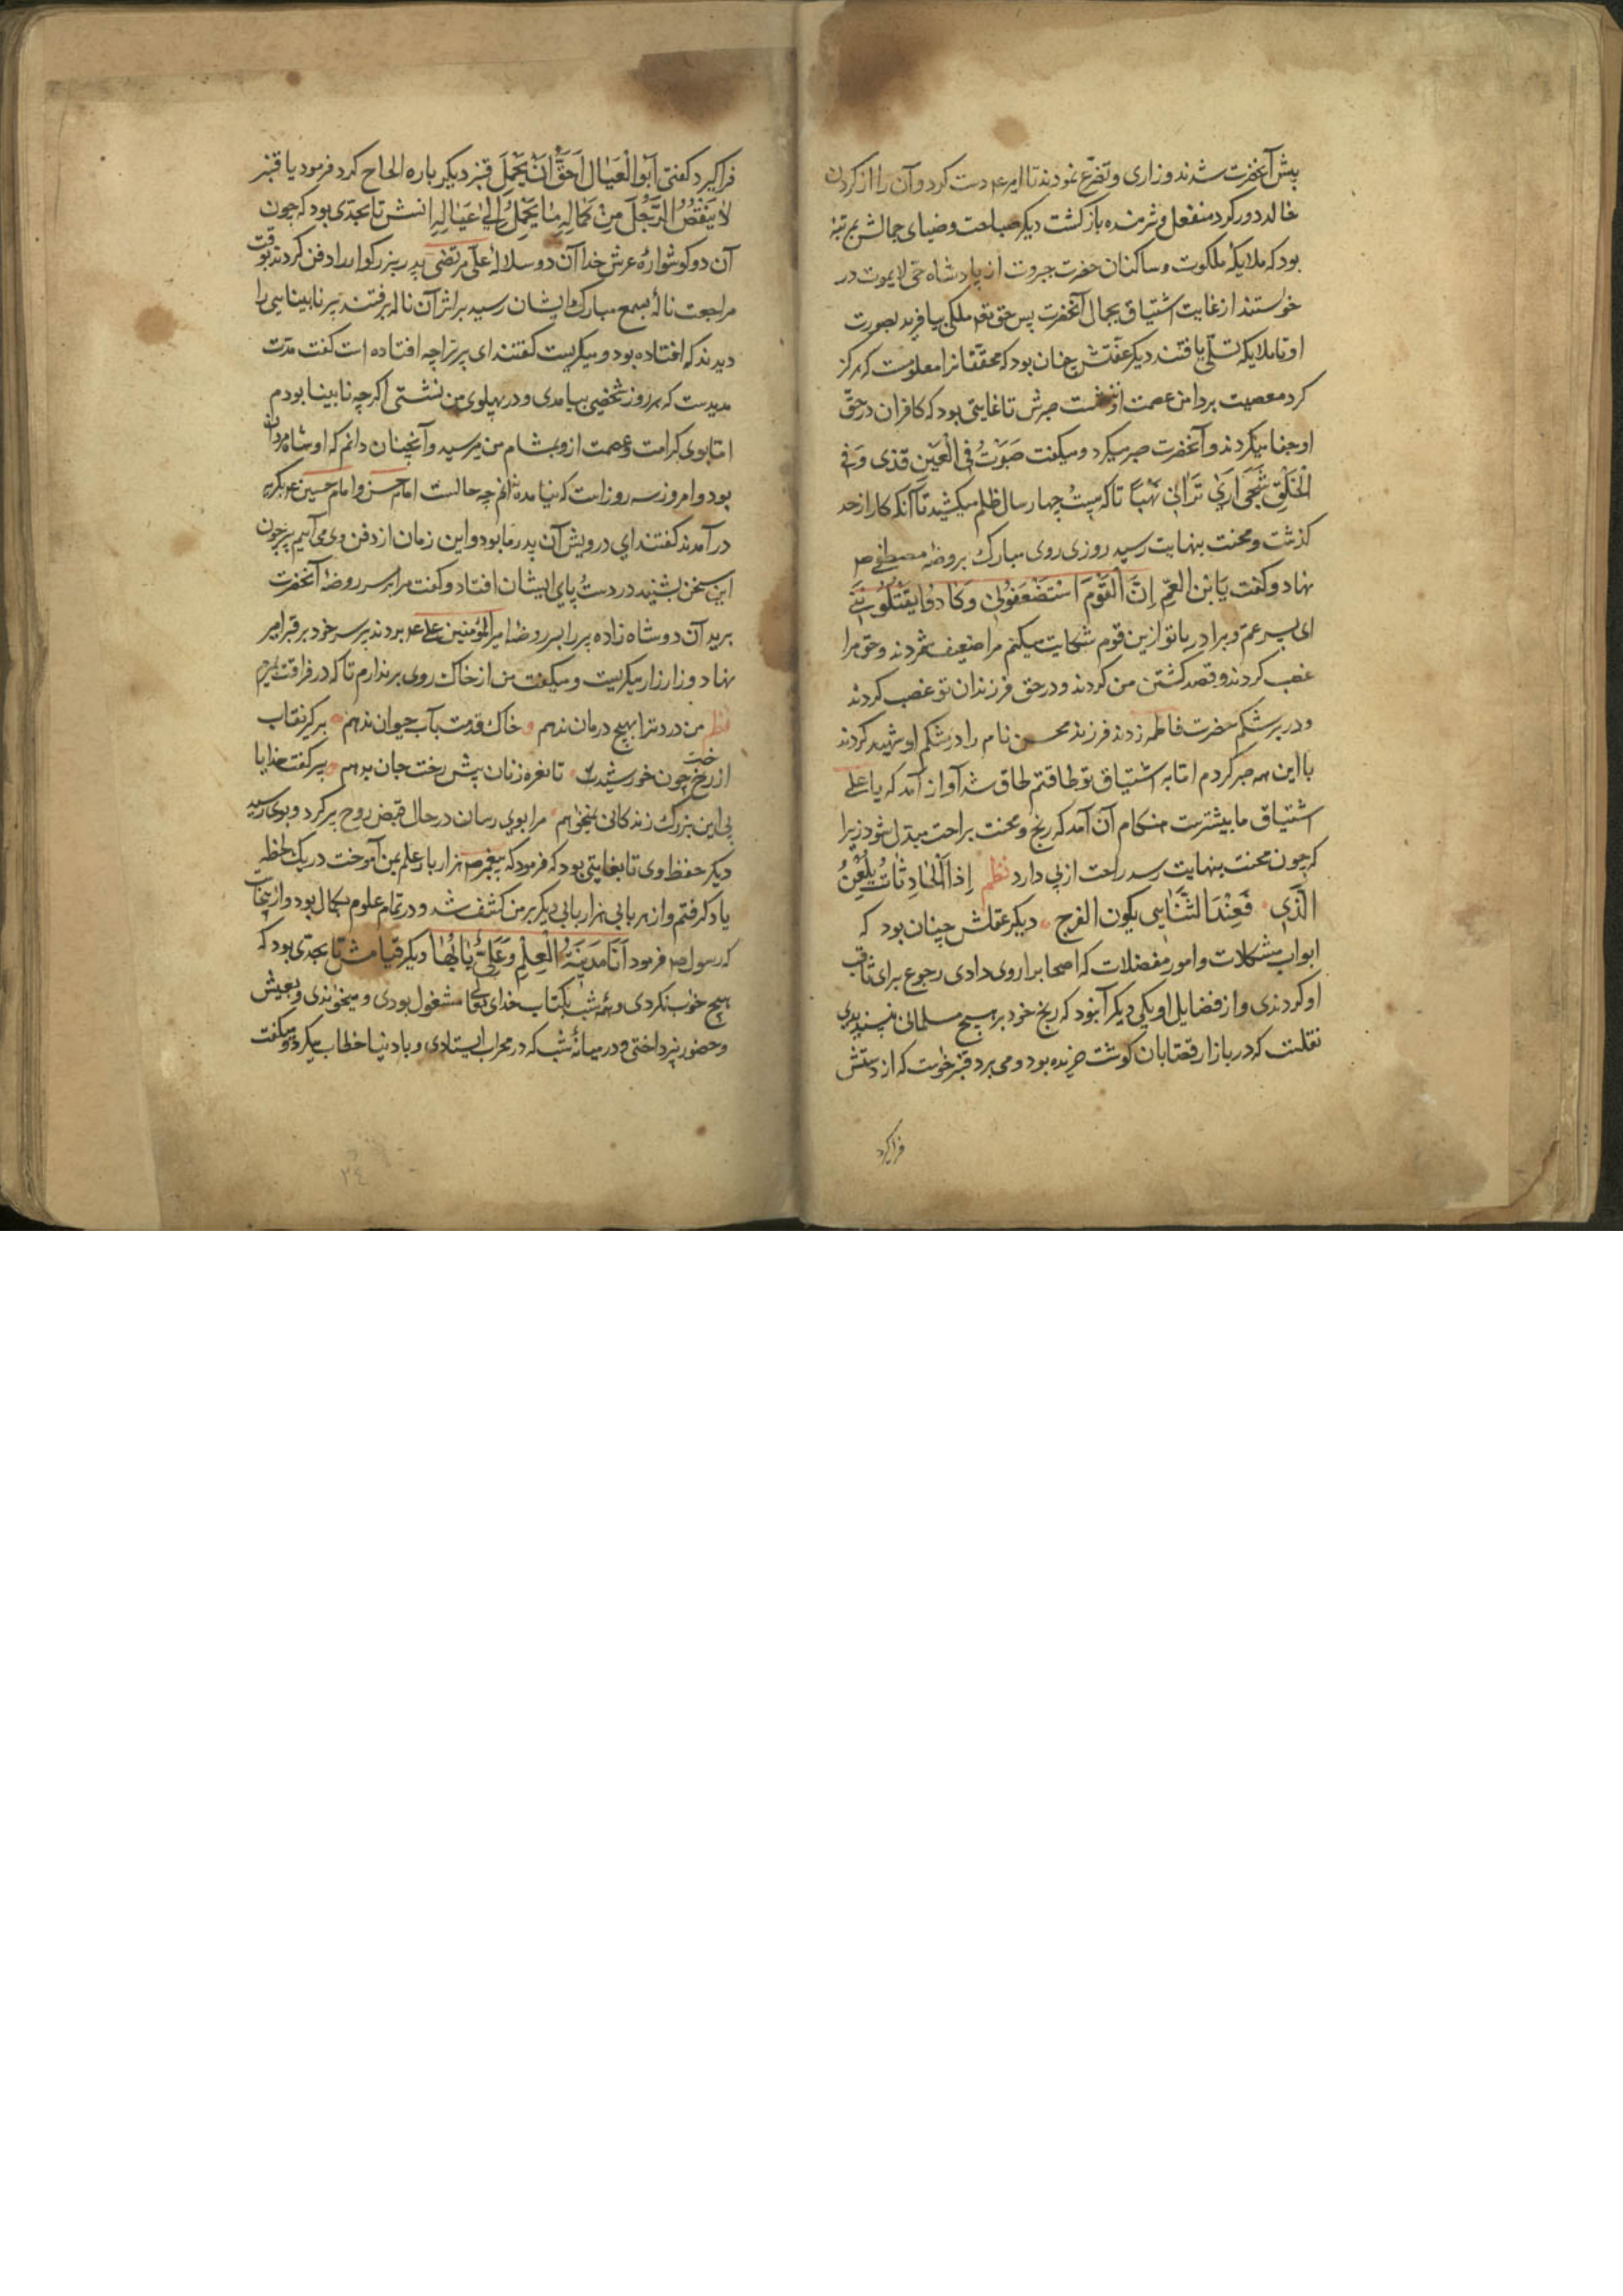 پیش آنحضرت شدند و زاری و تضرّع نمودند تا امیر عم دست کرد و آن را از کردن
خالد دور کرد منفعل و شرمنده بازکشت دیکر صباحت و ضیای جمالش بمرتبهٔ
بود که ملایکهٔ ملکوت و ساکنان حضرت جبروت از پادشاه حی لایموت در
خواستند از غایت اشتیاق بجمال آنحضرت پس حق تعم ملکی بیافرید بصورت
او تا ملایکه تسلّی یافتند دیکر عفّتش چنان بود که محقّقانرا معلومست که هرکز
کرد معصیت بر دامن عصمت او ننشست صبرش تا غایتی بود که کافران در حقّ
او جفا میکردند و آنحضرت صبر میکرد و میکفت صَبَرْتُ فِی الْعَیْنِ قَذی وَ فی
الْحَلْقِ شَجَی اَریٰ تُراثی نَهْبًا تا که بیست چهار سال ظلم میکشید تا آنکه کار از حد
کذشت و محنت بنهایت رسید روزی روی مبارک بروضهٔ مصطفی ص
نهاد و کفت یَا بْنَ الْعَمِّ اِنَّ الْقَوْمَ اسْتَضْعَفُونی وَ کادُوا یَقْتُلُونَنی
ای پسر عمّ و برادر با تو ازین قوم شکایت میکنم مرا ضعیف شمردند و حق مرا
غصب کردند و قصد کشتن من کردند و در حق فرزندان تو غصب کردند
و در بر شکم حضرت فاطمه زدند فرزند محسن نام را در شکم او شهید کردند
با این همه صبر کردم امّا به اشتیاق تو طاقتم طاق شد آواز آمد که یا علی
اشتیاق ما بیشترست هنکام آن آمد که رنج و محنت براحت مبدّل شود زیرا
که چون محنت بنهایت رسد راحت از پی دارد نظم اِذَا الْحادِثاتُ بَلَغْنَ
الَّذی فَعِنْدَ التَّناهی یکون الفرج دیکر عقلش چنان بود که
ابواب مشکلات و امور معضلات که اصحابرا روی دادی رجوع برای ثاقب
او کردندی و از فضایل او یکی دیکر آنبود که رنج خود بر هیچ مسلمانی نپسندیدی
نقلست که در بازار قصّابان کوشت خریده بود و می برد قنبر خواست که از دستش
فراکیرد
فراکیرد کفتی اَبُو الْعَیٰالِ اَحَقُّ اَنْ یَحْمِلَ قنبر دیکر باره الحاح کرد فرمود یا قنبر
لا یَنْقُصُ الرَّجُلَ مِنْ کَمالِهِ مٰا یَحْمِلُ اِلیٰ عَیٰالِهِ انسش تا بحدّی بود که چون
آن دو کوشوارهٔ عرش خدا آن دو سلالهٔ علی مرتضی پدر بزرکوار را دفن کردند بوقت
مراجعت نالهٔ بسمع مبارک ایشان رسید بر اثر آن ناله برفتند پیر نابینایی را
دیدند که افتاده بود و میکریست کفتند ای پیر ترا چه افتاده است کفت مدّت
مدیدست که هر روز شخصی بیامدی و در پهلوی من نشستی اکرچه نابینا بودم
امّا بوی کرامت و عصمت از وی بشام من میرسید و آنچنان دانم که او شاه مردان
بود و امروز سه روز است که نیامده ندانم چه حالست امام حسن و امام حسین عم بکریه
در آمدند کفتند ای درویش آن پدر ما بود و این زمان از دفن وی می آییم پیر چون
این سخن بشنید در دست و پای ایشان افتاد و کفت مرا بر سر روضهٔ آنحضرت
برید آن دو شاه زاده پیر را بسر روضهٔ امیر المؤمنین علی عم بردند پیر سر خود بر قبر امیر
نهاد و زار زار میکریست و میکفت من از خاک روی بر ندارم تا که در فراقت بمیرم
نظم من درد ترا بهیچ درمان ندهم خاک قدمت بآب حیوان ندهم برکیر نقاب
از رخ چون خورشیدت تا نعره زنان پیش رخت جان بدهم پیر کفت خدایا
بی این بزرک زندکانی نمیخواهم مرا بوی رسان در حال قبض روح پیر کرد و بوی رسید
دیکر حفظ وی تا بغایتی بود که فرمود که پیغمبر ص هزار باب علم بمن آموخت در یک لحظه
یاد کرفتم و از هر بابی هزار بابی دیکر بر من کشف شد و در تمام علوم بکمال بود و ازینجاست
که رسول ص فرمود اَنَا مَدینَةُ الْعِلْمِ وَ عَلیٌّ بٰابُهٰا دیکر قیامش تا بحدّی بود که
هیچ خواب نکردی و همه شب بکتاب خدای تعالی مشغول بودی و میخواندی و بعیش
و حضور نپرداختی و در میانهٔ شب که در محراب ایستادی و با دنیا خطاب میکردی و میکفت
٣٤